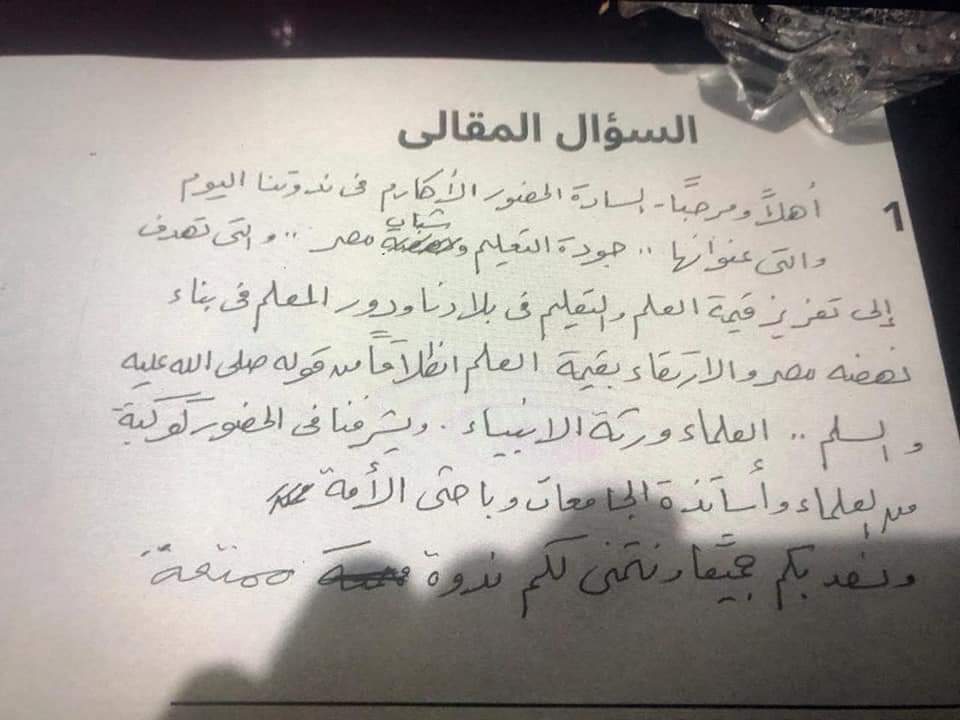 السؤال المقالى
1
أهلاً ومرحبًا - السادة الحضور الأكارم فى ندوتنا اليوم
والتى عنوانها .. جودة التعليم وشباب مصر .. والتى تهدف
إلى تعزيز قيمة العلم والتعليم فى بلادنا ودور المعلم فى بناء
نهضة مصر والارتقاء بقيمة العلم انطلاقاً من قوله صلى الله عليه
والسلم .. العلماء ورثة الانبياء . ويشرفنا فى الحضور كوكبة
من العلماء وأساتذة الجامعات وباحثى الأمة
ونسعد بكم جميعًا ونتمنى لكم ندوة ممتعة